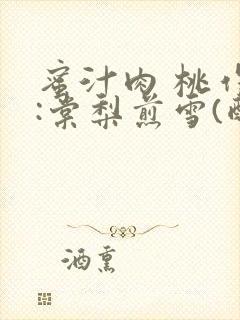 蜜汁肉桃作
:棠梨煎雪(酥
酒熏